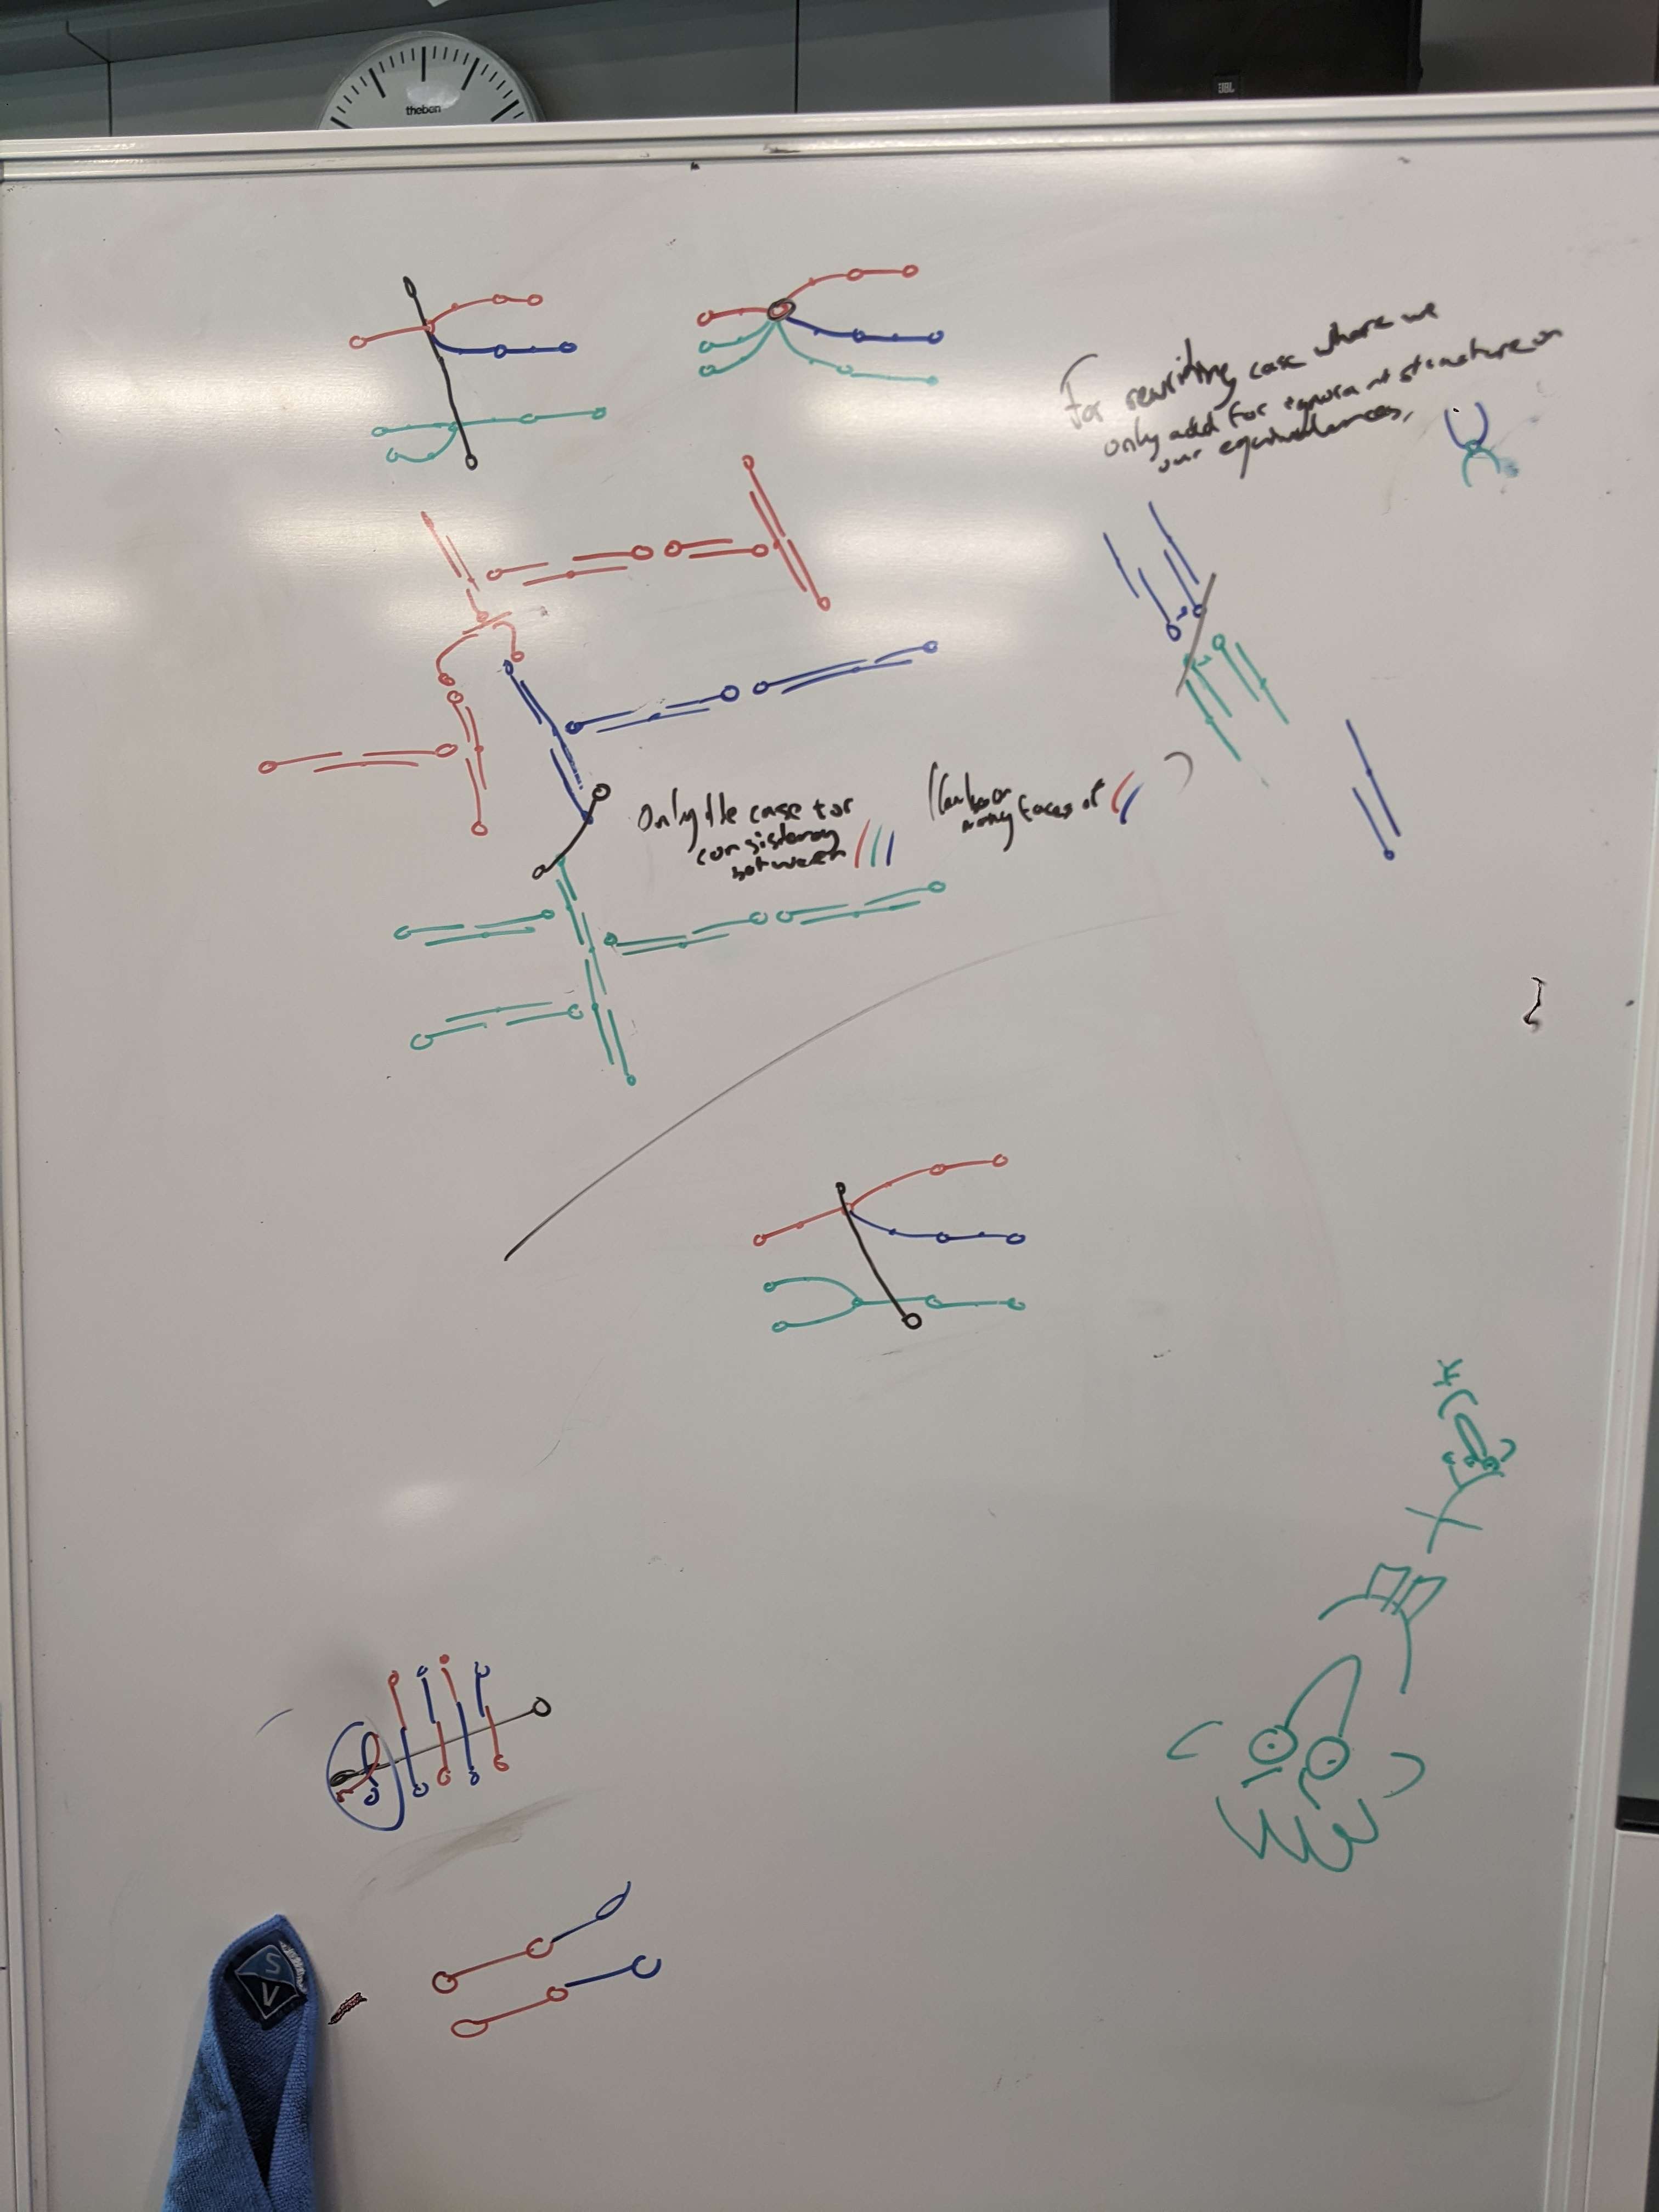 theben
JBL
For rewriting case where we
only add for structure on
our equivalences,
Only the case for
consistency
between
many faces of
S
V